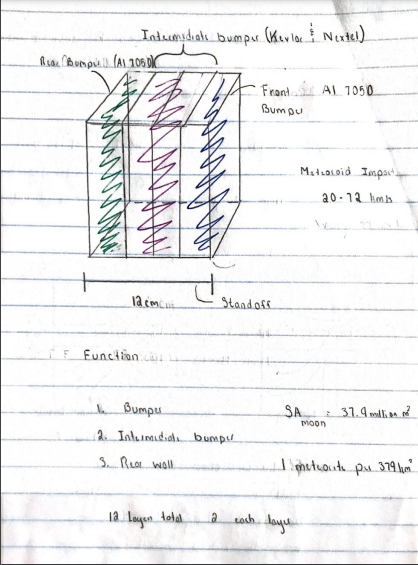 Intermediate bumper (Kevlar & Nextel)
Rear Bumper (Al 7050)
Front Al 7050
Bumper
Meteoroid Impact
20-72 km/s
12cm
Standoff
Function
1. Bumper
SA moon = 37.9 million m²
2. Intermediate bumper
3. Rear wall
1 meteorite per 379 km²
12 Layers total 2 each layer